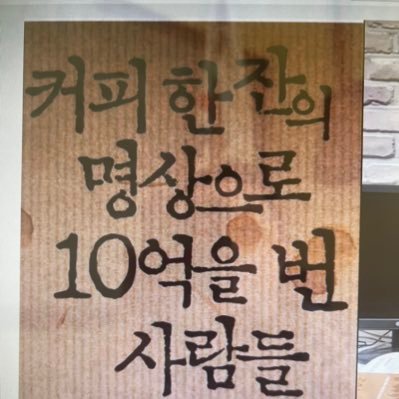 커피 한 잔의
명상으로
10억을 번
사람들